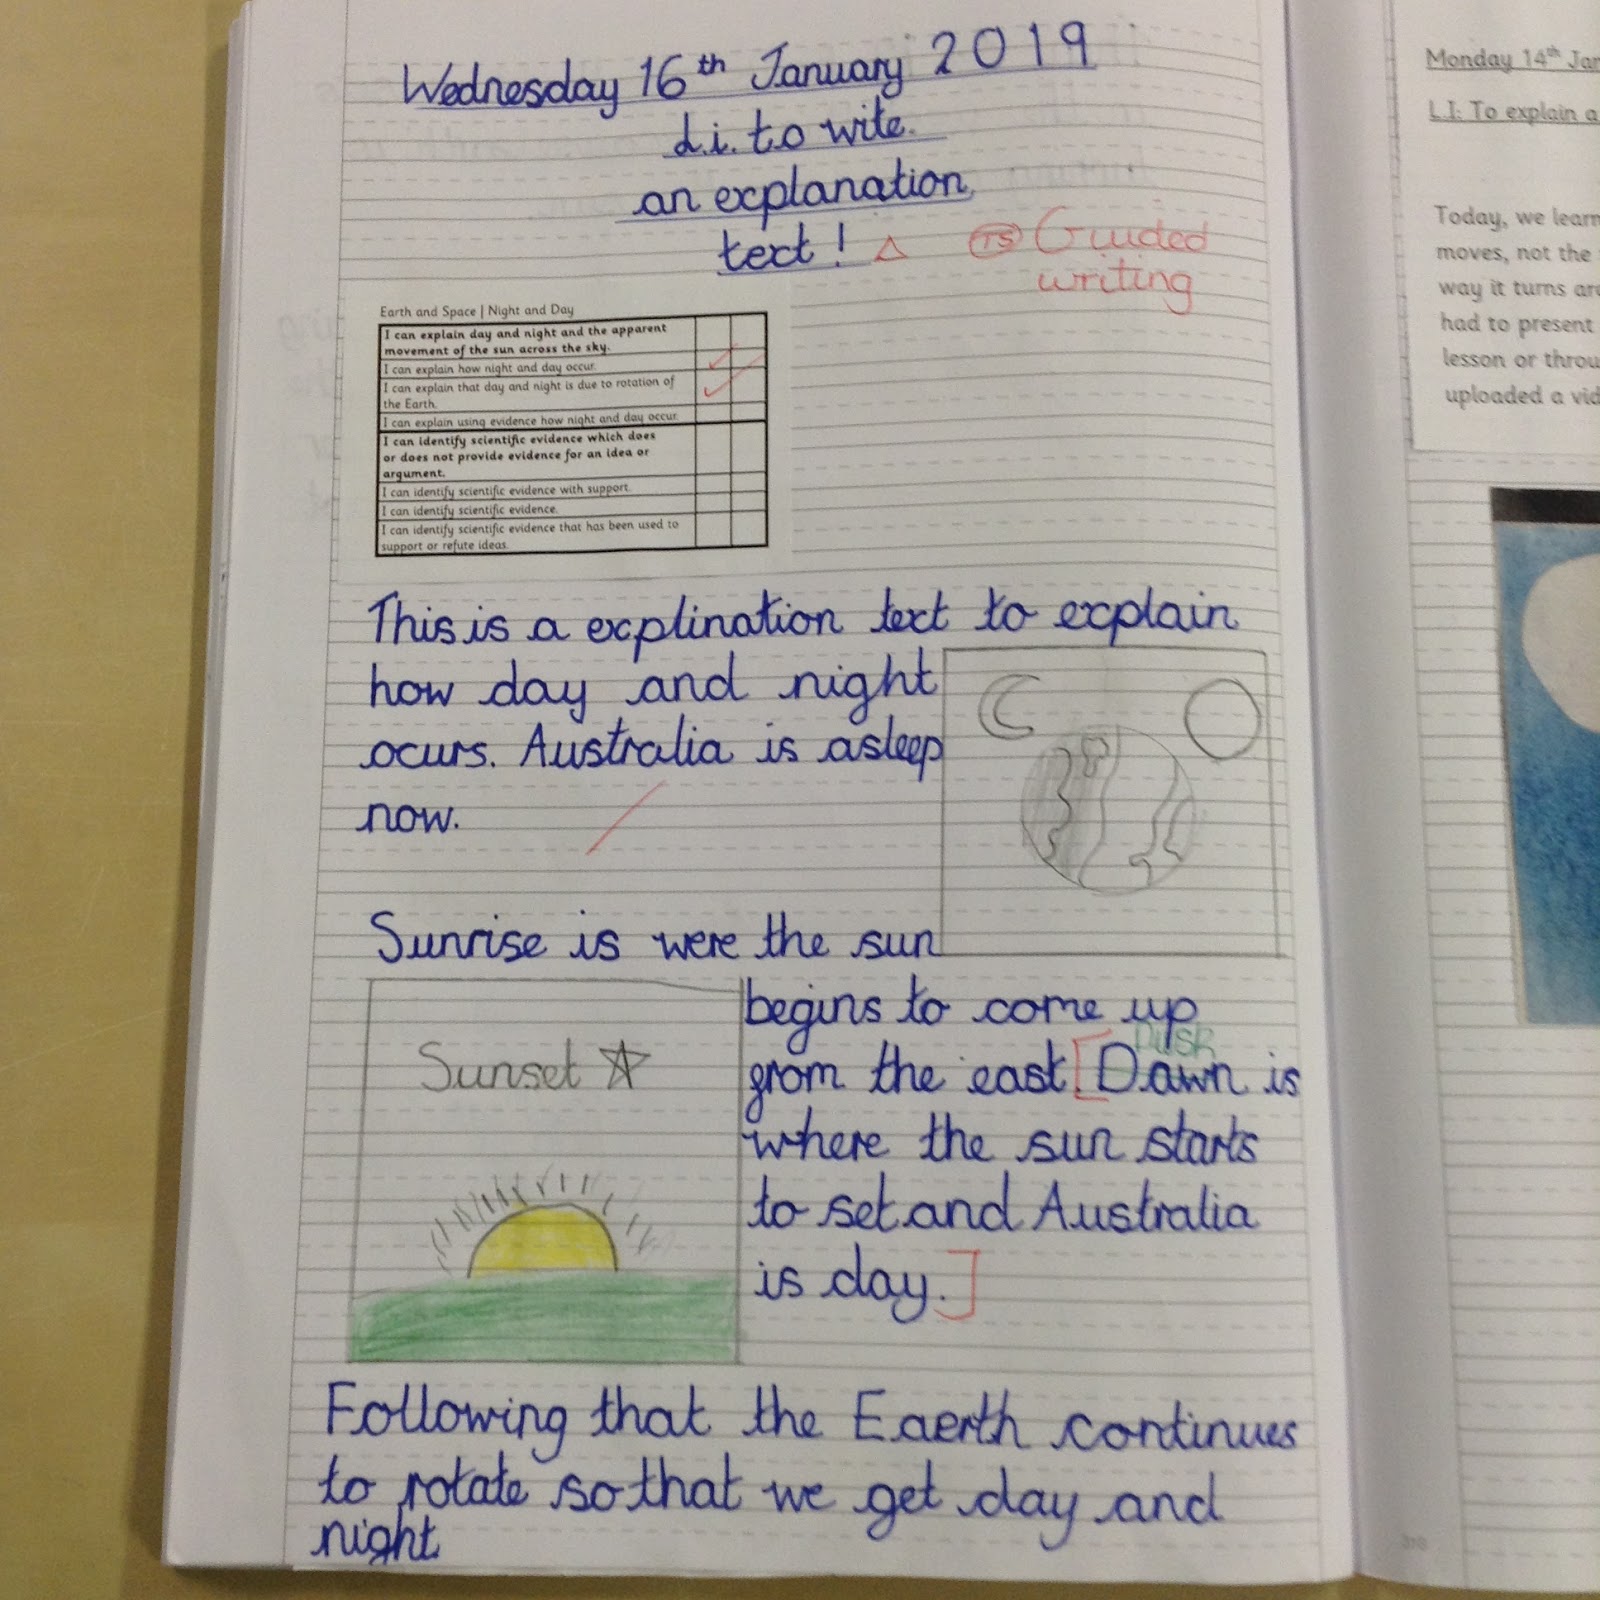 Wednesday 16th January 2019
L.i. to wite.
an explanation
text!
TS Guided
writing
Earth and Space | Night and Day
I can explain day and night and the apparent
movement of the sun across the sky.
I can explain how night and day occur.
I can explain that day and night is due to rotation of
the Earth.
I can explain using evidence how night and day occur.
I can identify scientific evidence which does
or does not provide evidence for an idea or
argument.
I can identify scientific evidence with support.
I can identify scientific evidence.
I can identify scientific evidence that has been used to
support or refute ideas.
This is a explination text to explain
how day and night
ocurs. Australia is asleep
now.
Sunrise is were the sun
begins to come up
Dusk
grom the east [Dawn is
where the sun starts
to set and Australia
is day.]
Sunset
Following that the Eaerth continues
to rotate so that we get day and
night
Monday 14th Jan
L.I: To explain a
Today, we learn
moves, not the
way it turns aro
had to present
lesson or throu
uploaded a vid